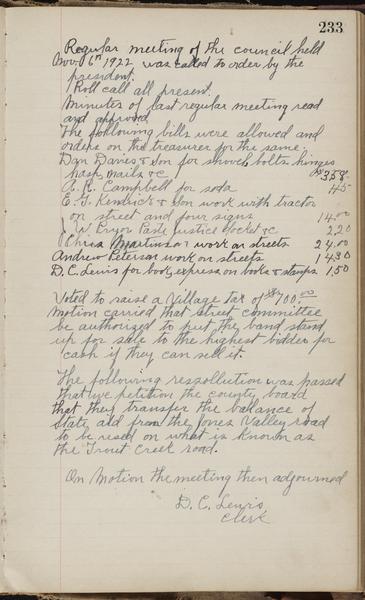 233
Regular meeting of the council held
Nov. 6th 1922 was called to order by the
president.
Roll call all present.
Minutes of last regular meeting read
and approved
The following bills were allowed and
orders on the treasurer for the same.
Dan Davies & Son for shovel, bolts, hinges
hasp, nails &c $3.58
A. R. Campbell for soda 45
E. T. Kendrick & Son work with tractor
on street and four signs 14.00
J. W. Pryor Paste, justice docket &c 2.20
Chris Martinson work on streets 24.00
Andrew Peterson work on streets 14.30
D. C. Lewis for book, express on books & stamps 1.50
Voted to raise a Village tax of $700.00
Motion carried that street committee
be authorized to put the band stand
up for sale to the highest bidder for
cash if they can sell it.
The following ressollution was passed
that we petition the county board
that they transfer the ballance of
State aid from the Jones Valley road
to be used on what is known as
the Trout Creek road.
On Motion the meeting then adjourned
D. C. Lewis
Clerk